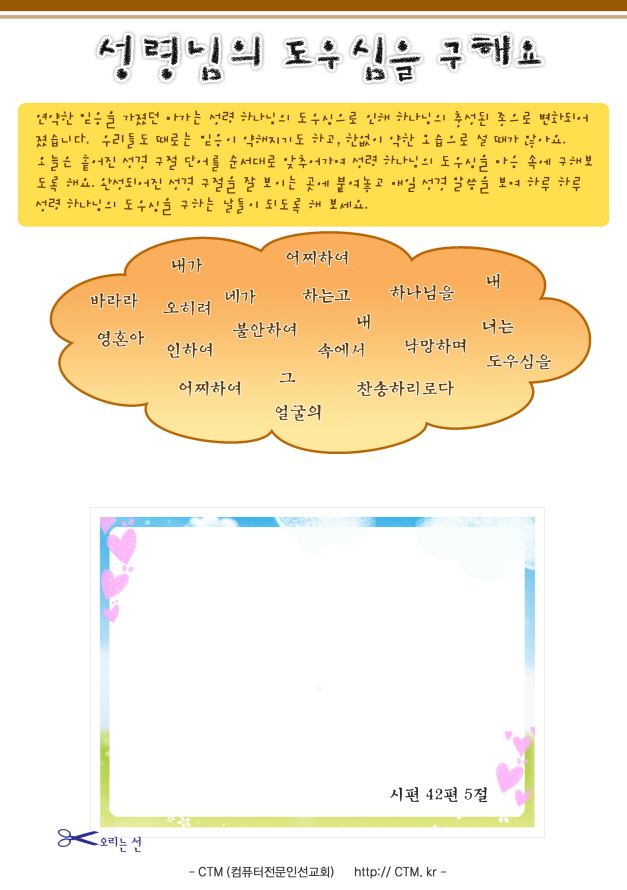 성령님의 도우심을 구해요
연약한 믿음을 가졌던 마가는 성령 하나님의 도우심으로 인해 하나님의 충성된 종으로 변화되어
졌습니다. 우리들도 때로는 믿음이 약해지기도 하고, 한없이 약한 모습으로 설 때가 많아요.
오늘은 흩어진 성경 구절 단어를 순서대로 맞추어가며 성령 하나님의 도우심을 마음 속에 구해보
도록 해요. 완성되어진 성경 구절을 잘 보이는 곳에 붙여놓고 매일 성경 말씀을 보며 하루 하루
성령 하나님의 도우심을 구하는 날들이 되도록 해 보세요.
내가 어찌하여
바라라 오히려 네가 하는고 하나님을 내
영혼아 불안하여 내 너는
인하여 속에서 낙망하며 도우심을
어찌하여 그 찬송하리로다
얼굴의
시편 42편 5절
오리는 선
- CTM (컴퓨터전문인선교회) http:// CTM. kr -